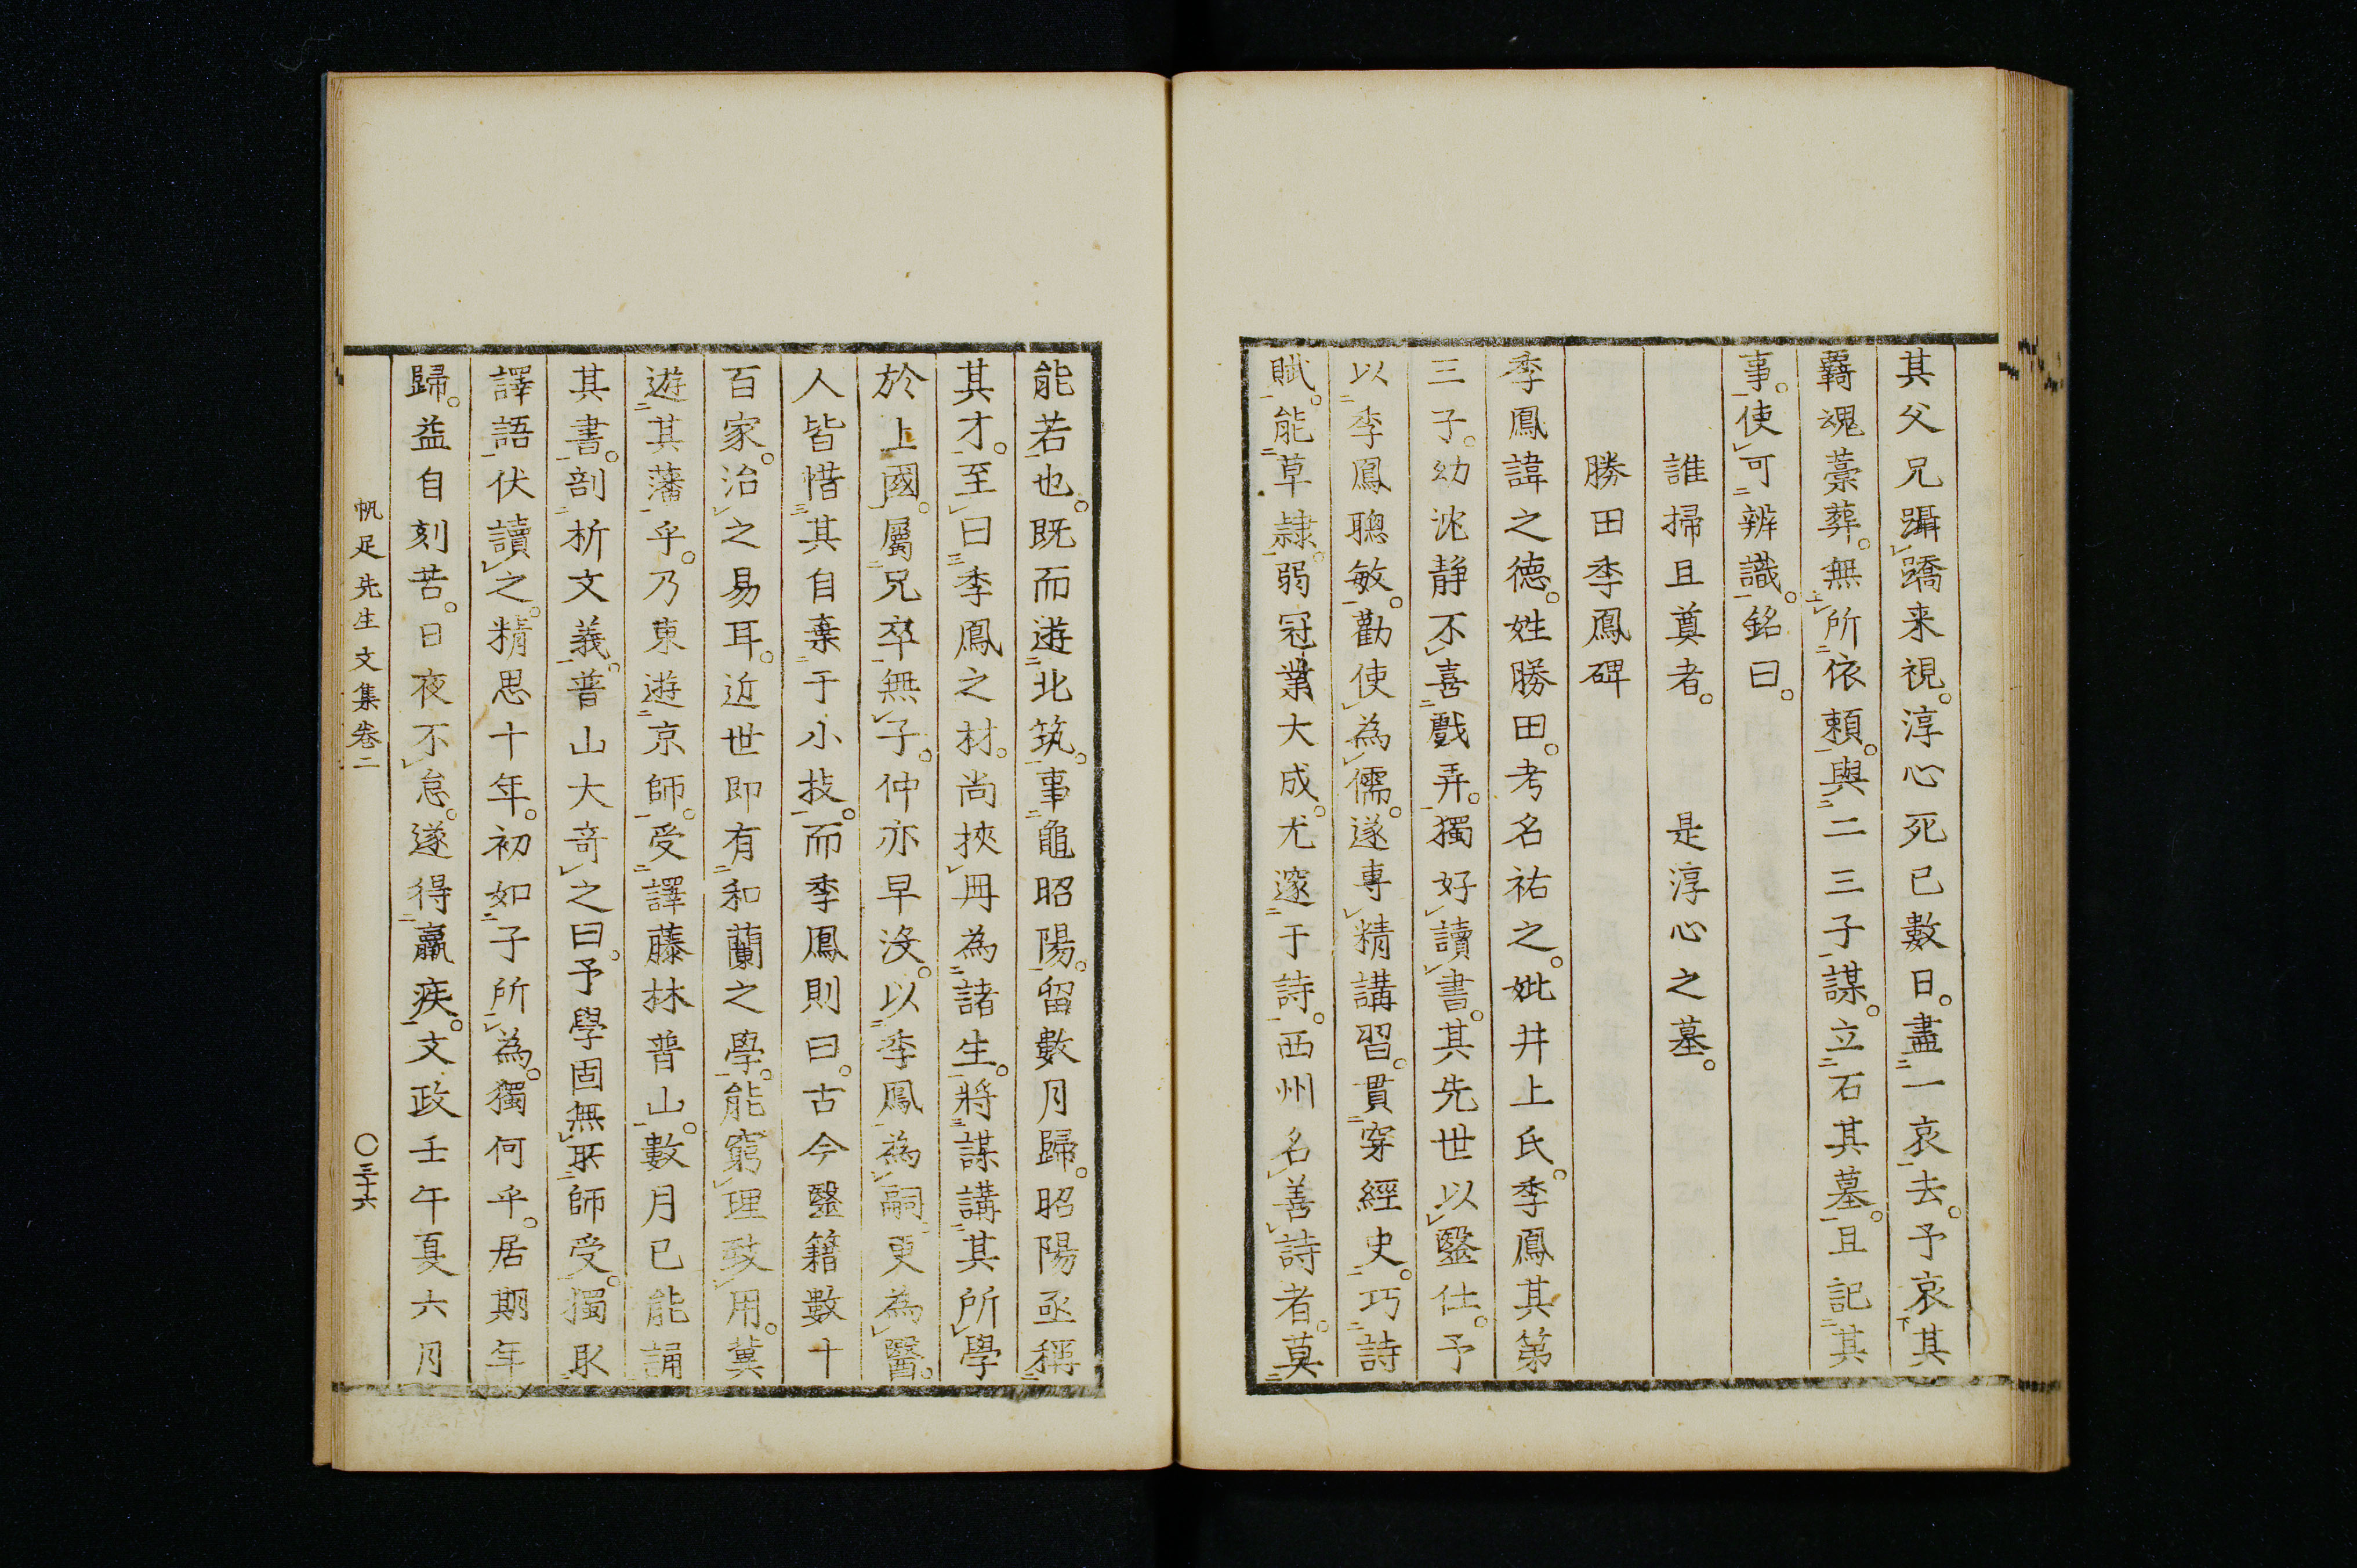 其父兄躡蹻来視。淳心死已數日。盡一哀去。予哀其
覊魂藁葬。無所依頼。與二三子謀。立石其墓。且記其
事。使可辨識。銘曰。
誰掃且奠者。　是淳心之墓。
勝田季鳳碑
季鳳諱之德。姓勝田。考名祐之。妣井上氏。季鳳其第
三子。幼沈静不喜戲弄。獨好讀書。其先世以毉仕。予
以季鳳聰敏。勸使為儒。遂専精講習。貫穿經史。巧詩
賦。能草隷。弱冠業大成。尤邃于詩。西州名善詩者。莫
能若也。既而遊北筑。事龜昭陽。留數月歸。昭陽亟稱
其才。至曰季鳳之材。尚挾冊為諸生。將謀講其所學
於上國。屬兄卒無子。仲亦早沒。以季鳳為嗣。更為醫。
人皆惜其自棄于小技。而季鳳則曰。古今毉籍數十
百家。治之易耳。近世即有和蘭之學。能窮理致用。冀
遊其藩乎。乃東遊京師。受譯藤林普山。數月已能誦
其書。剖析文義。普山大竒之曰。予學固無所師受。獨取
譯語伏讀之。精思十年。初如子所為。獨何乎。居期年
歸。益自刻苦。日夜不怠。遂得羸疾。文政壬午夏六月
帆足先生文集卷二　〇三十六